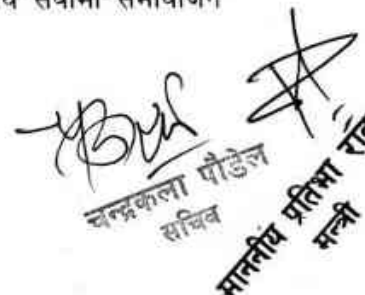 सेवामा समायोजन
चन्द्रकला पौडेल
सचिव
माननीय प्रतिभा
मन्त्री